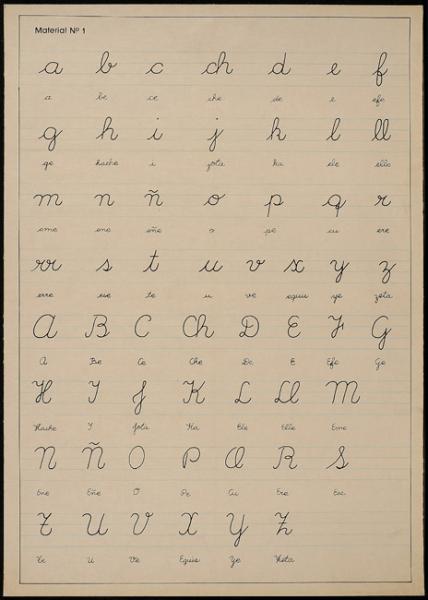 Material Nº 1
a b c ch d e f
a be ce che de e efe
g h i j k l ll
ge hache i jota ka ele elle
m n ñ o p q r
eme ene eñe o pe cu ere
rr s t u v x y z
erre ese te u ve equis ye zeta
A B C Ch D E F G
A Be Ce Che De E Efe Ge
H I J K L Ll M
Hache I Jota Ka Ele Elle Eme
N Ñ O P Q R S
Ene Eñe O Pe Cu Ere Ese
T U V X Y Z
Te U Ve Equis Ye Zeta